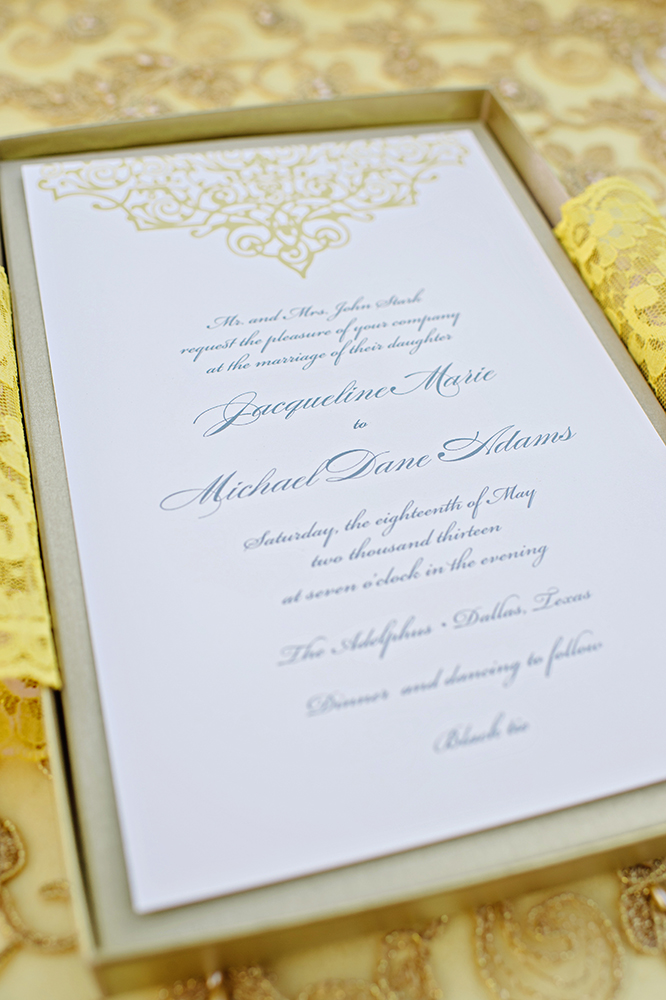 Mr. and Mrs. John Stark
request the pleasure of your company
at the marriage of their daughter
Jacqueline Marie
to
Michael Dane Adams
Saturday, the eighteenth of May
two thousand thirteen
at seven o'clock in the evening
The Adelphus • Dallas, Texas
Dinner and dancing to follow
Black tie